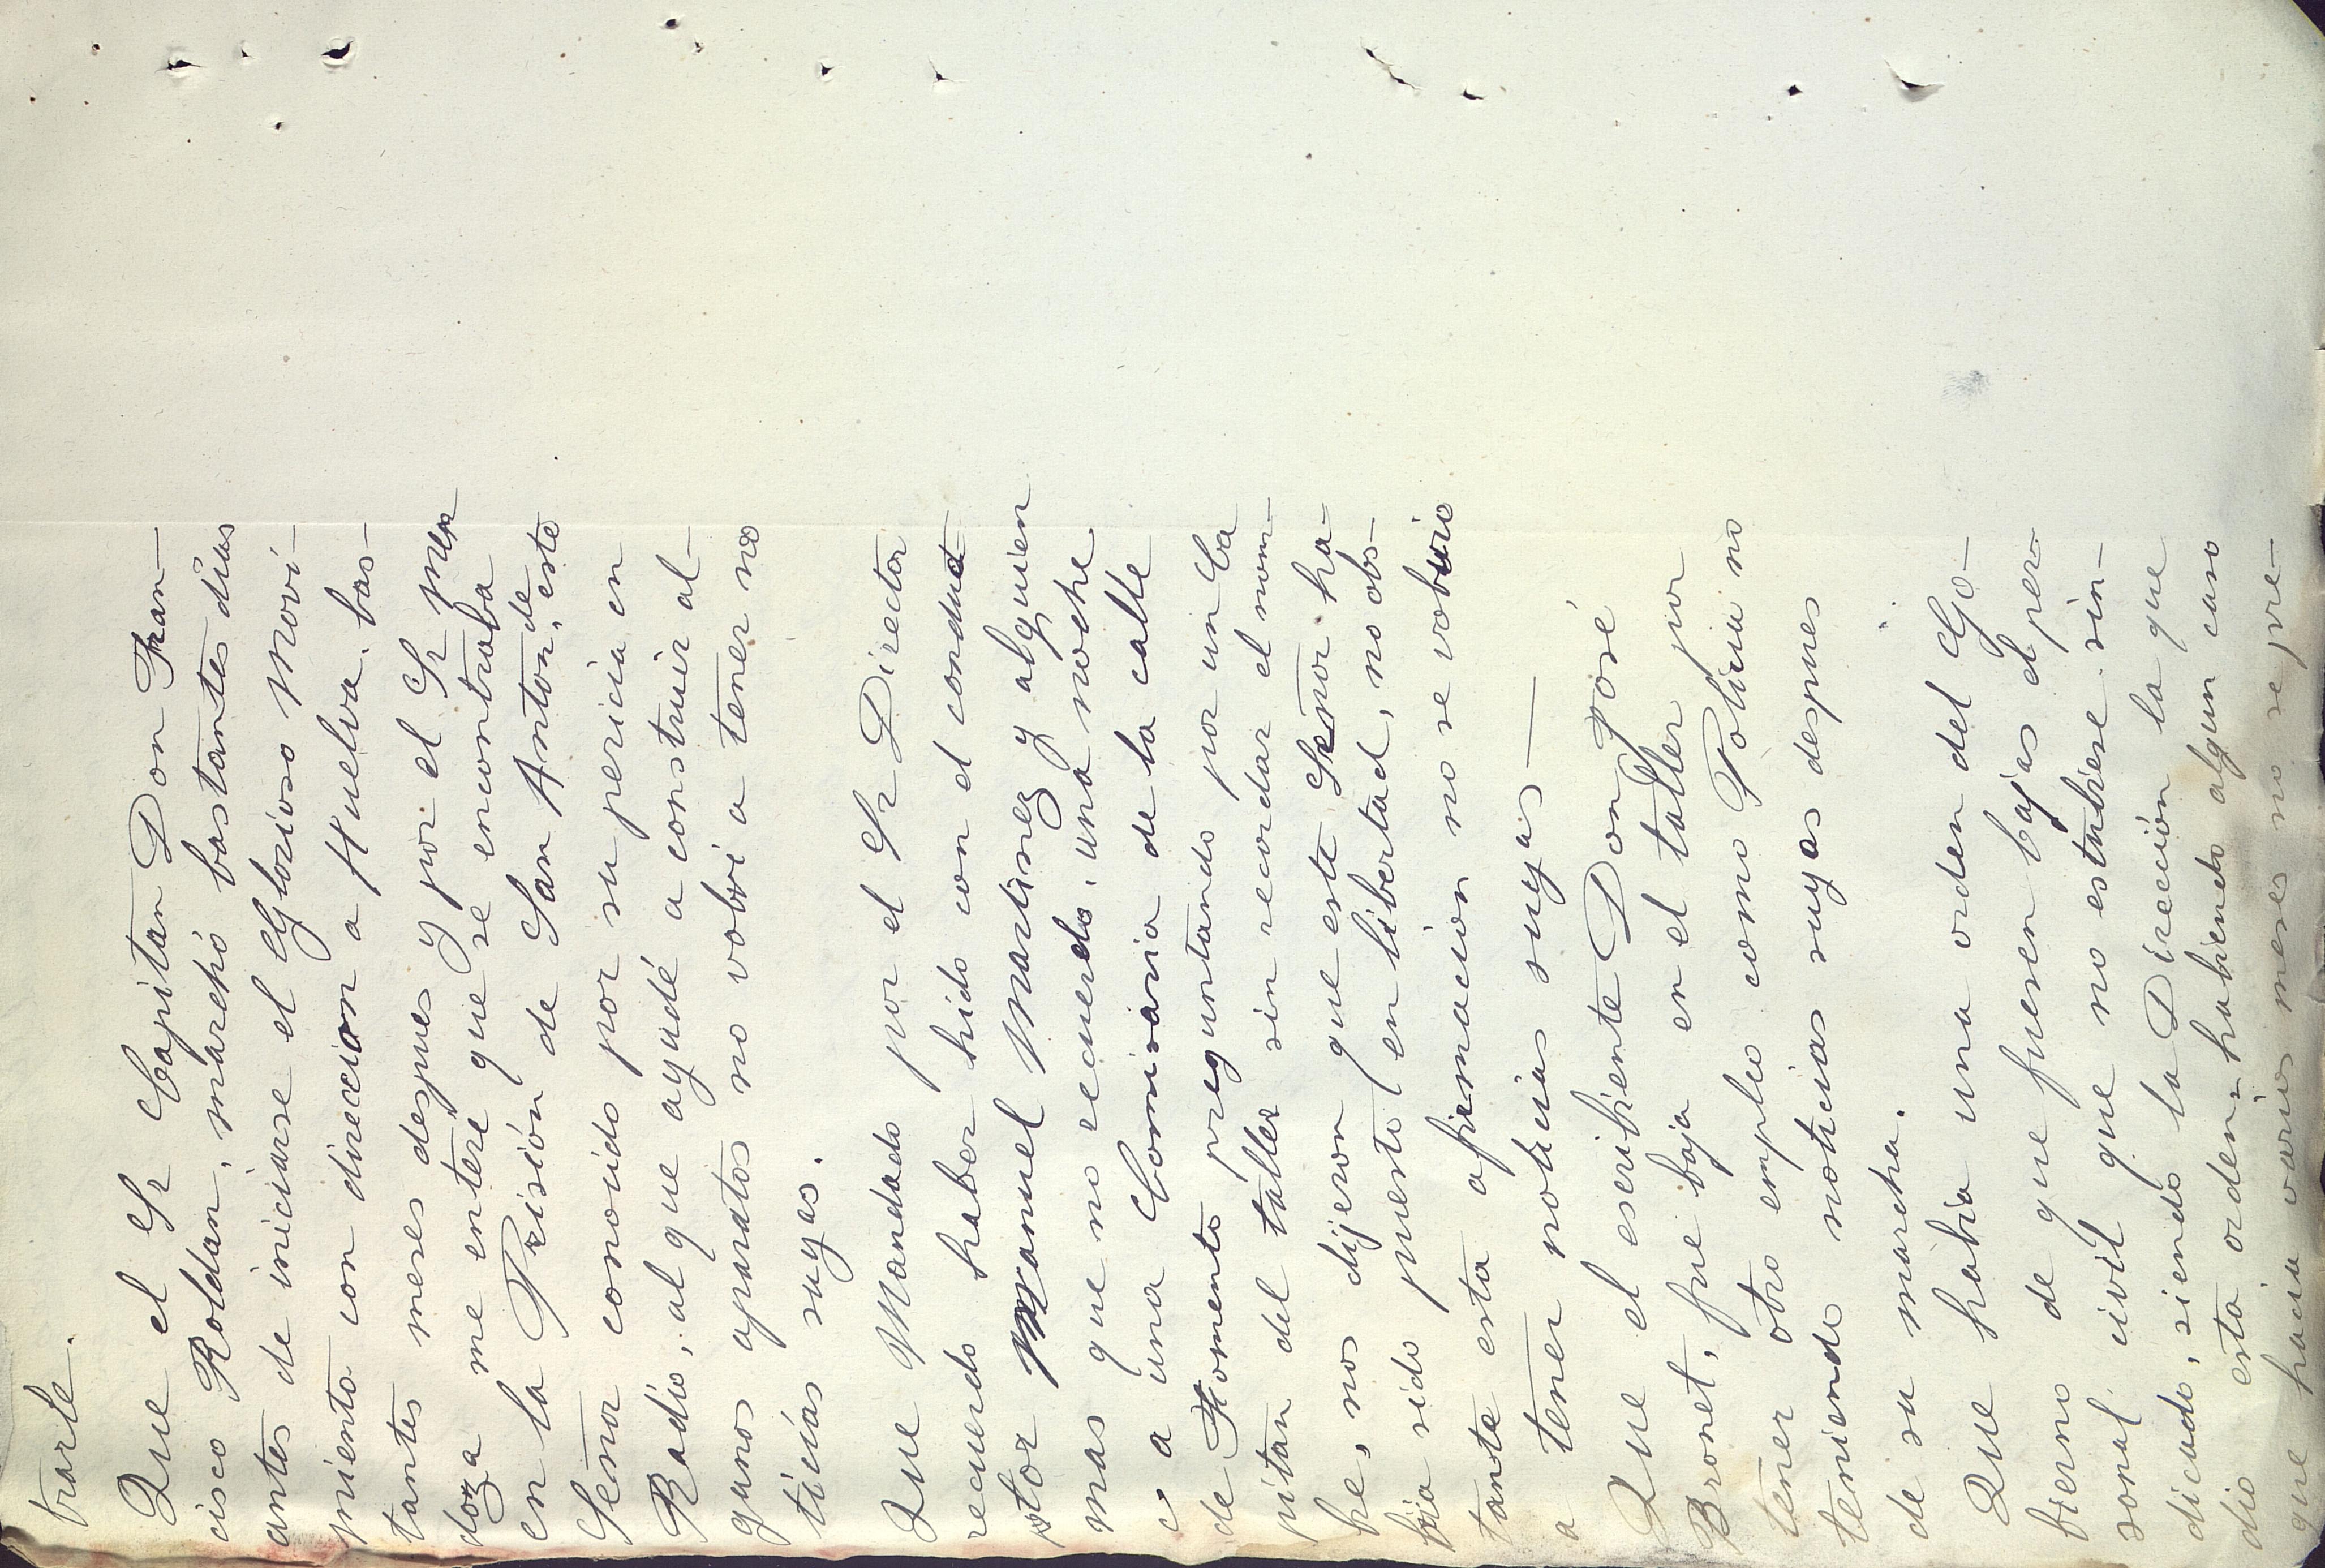 trarle.
Que el Sr Capitan Don Fran-
cisco Roldan, marchó bastantes dias
antes de iniciarse el Glorioso Movi-
miento con direccion a Huelva. bas-
tantes meses despues y por el Sr Men
doza me enteré que se encontraba
en la Prisión de San Anton, de este
Señor conocido por su pericia en
Radio, al que ayudé a construir al-
gunos aparatos no volvi a tener no
ticias suyas.
Que Mandado por el Sr Director
recuerdo haber hido con el conduc
tor Manuel Martinez y alguien
mas que no recuerdo, una noche
a una Comisaria de la calle
de Fomento preguntando por un Ca
pitan del taller sin recordar el nom-
bre, nos dijeron que este Señor ha-
bia sido puesto en libertad, no obs-
tante esta afirmacion no se volvio
a tener noticias suyas —
Que el escribiente Don José
Bronet, fue baja en el taller por
tener otro empleo como Policia no
teniendo noticias suyas despues
de su marcha.
Que habia una orden del Go-
bierno de que fuesen bajas el per-
sonal civil que no estubiese sin-
dicado, siendo la Dirección la que
dio esta orden habiendo algun caso
que hacia varios meses no se pre-